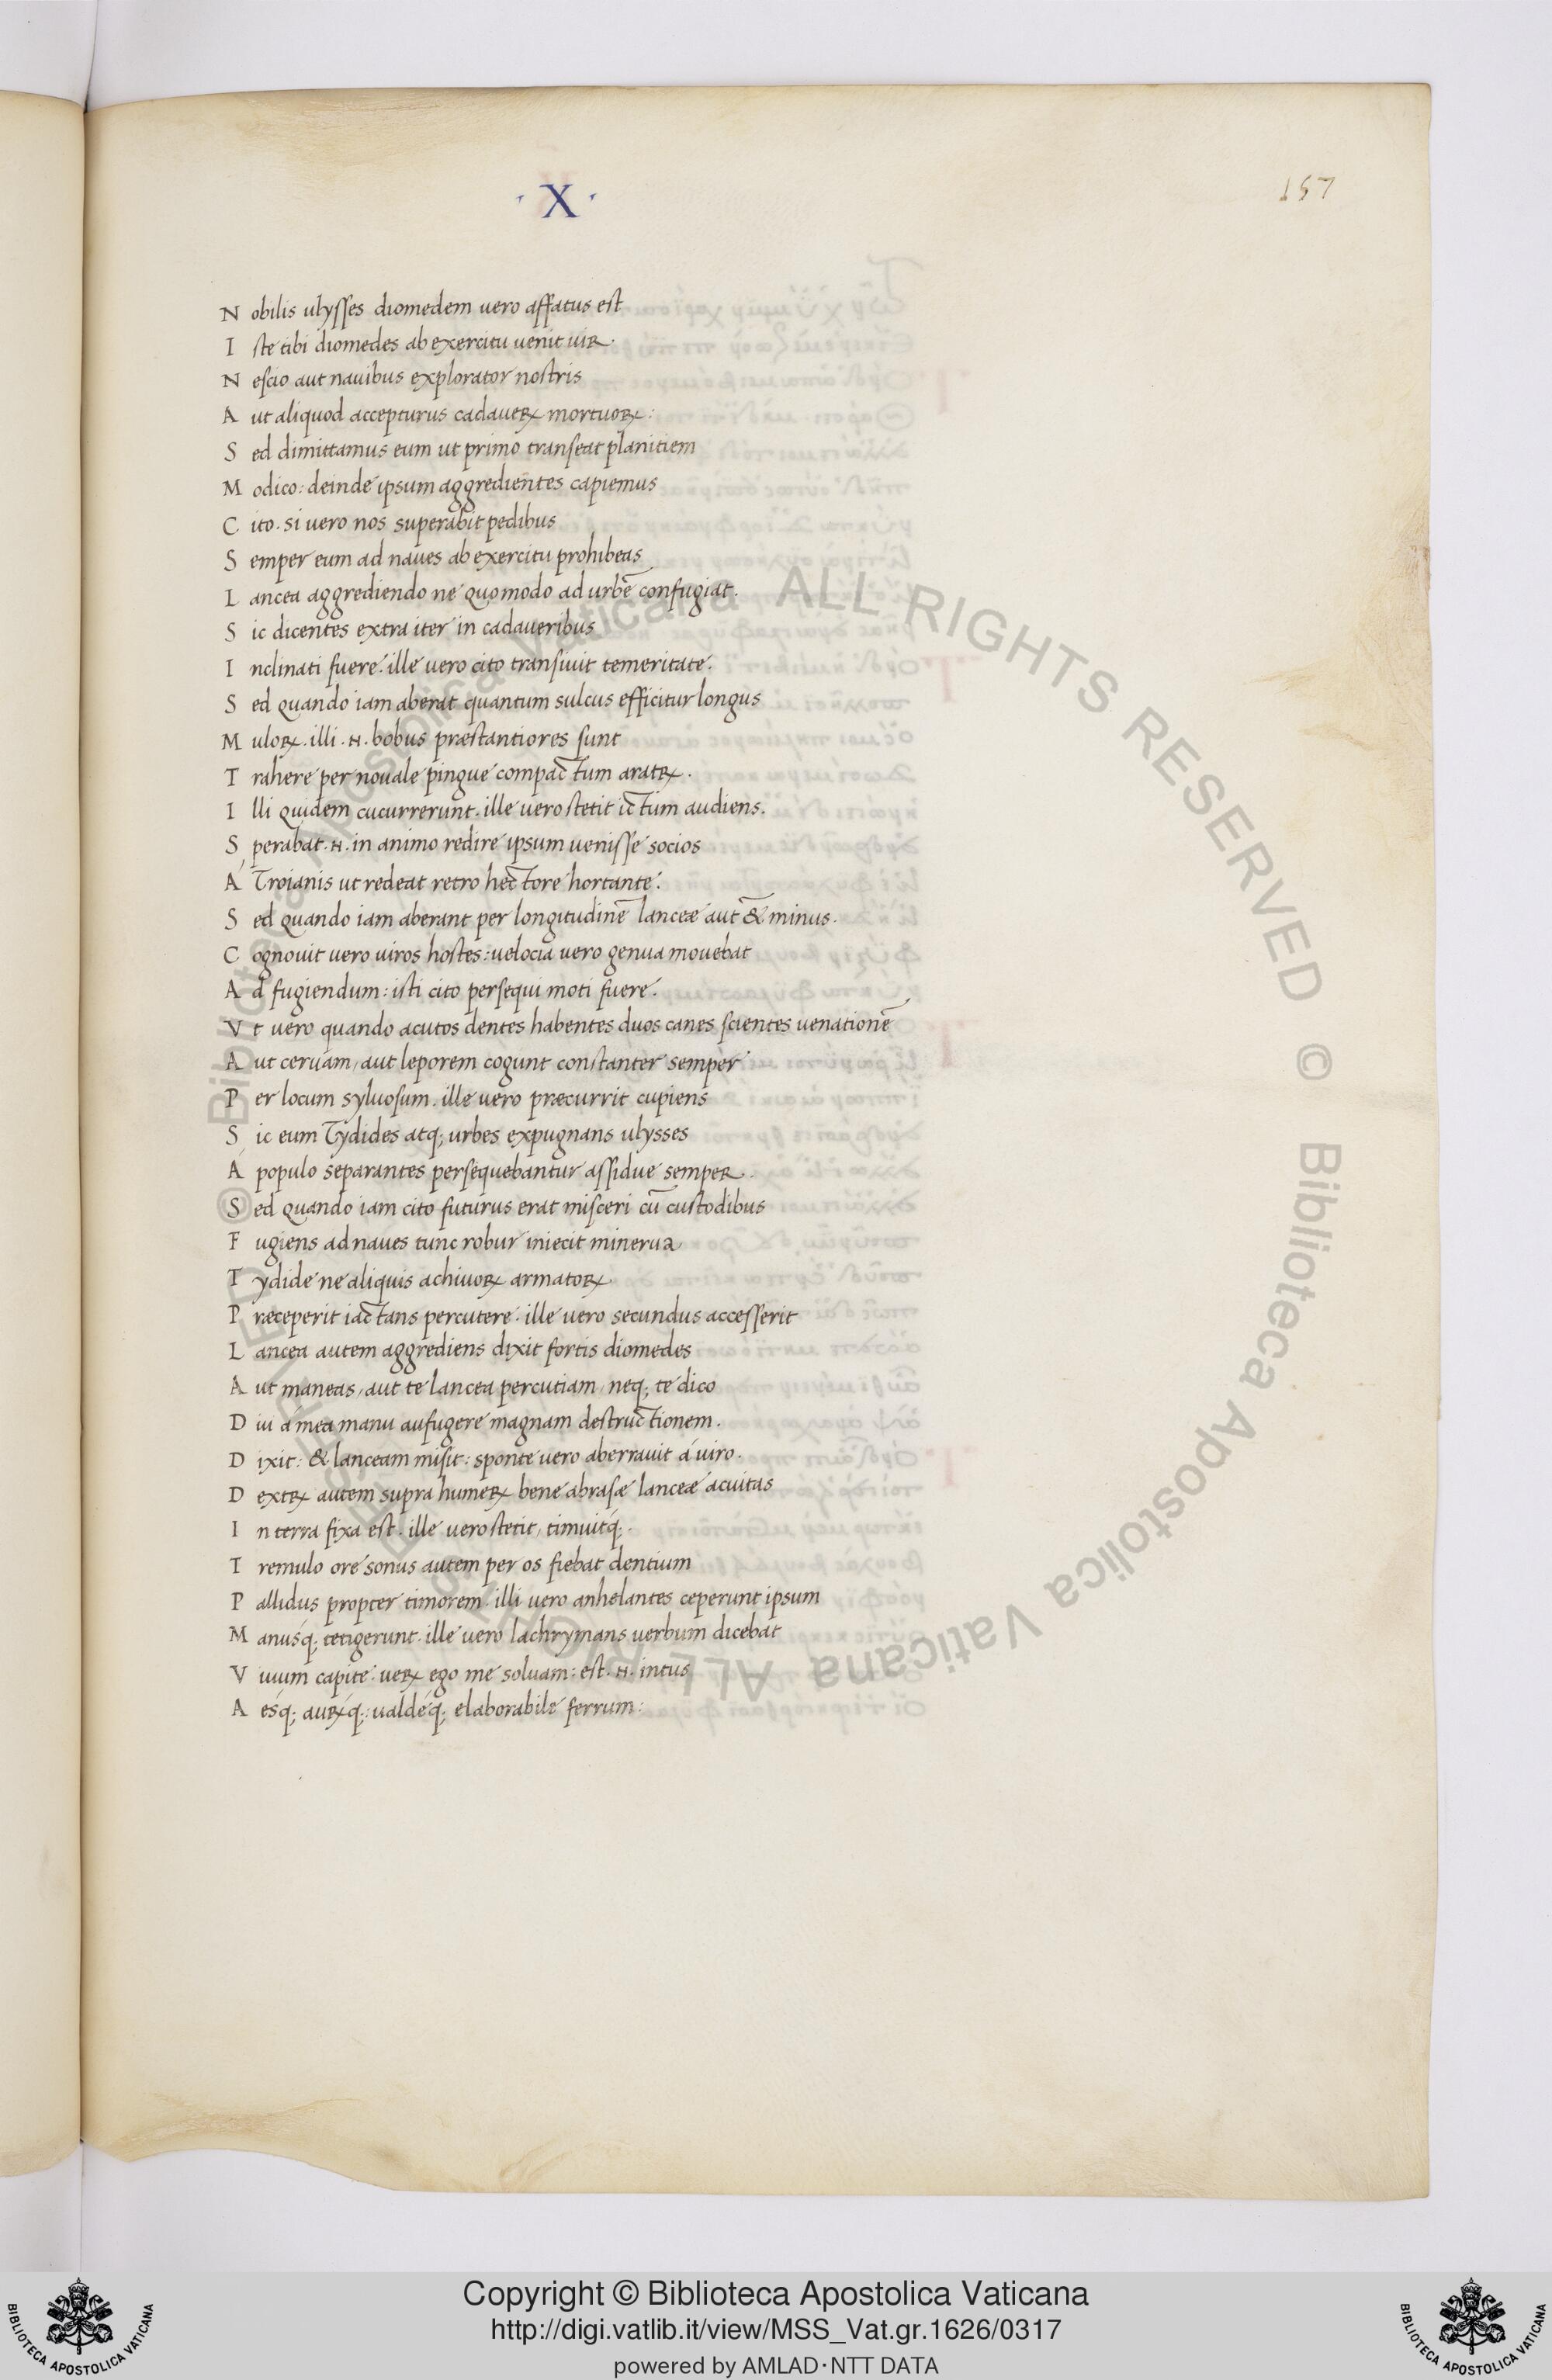 · X ·
157
Nobilis ulysses diomedem uero affatus est
Iste tibi diomedes ab exercitu uenit uiR.
Nescio aut nauibus explorator nostris
Aut aliquod accepturus cadaueꝝ mortuoꝝ:
Sed dimittamus eum ut primo transeat planitiem
Modico: deinde ipsum aggredientes capiemus
Cito. si uero nos superabit pedibus
Semper eum ad naues ab exercitu prohibeas
Lancea aggrediendo ne quomodo ad urbē confugiat.
Sic dicentes extra iter in cadaueribus
Inclinati fuere. ille uero cito transiuit temeritate.
Sed quando iam aberat quantum sulcus efficitur longus
Muloꝝ. illi .N. bobus præstantiores sunt
Trahere per nouale pingue compactum aratꝝ.
Illi quidem cucurrerunt. ille uero stetit ictum audiens.
Sperabat .N. in animo redire ipsum uenisse socios
Á Troianis ut redeat retro hectore hortante.
Sed quando iam aberant per longitudinē lanceæ aut & minus.
Cognouit uero uiros hostes: uelocia uero genua mouebat
Ad fugiendum: isti cito persequi moti fuere.
Vt uero quando acutos dentes habentes duos canes scientes uenationē
Aut ceruam, aut leporem cogunt constanter semper
Per locum syluosum. ille uero præcurrit cupiens
Sic eum Tydides atq; urbes expugnans ulysses
Á populo separantes persequebantur assidue sempeR.
Sed quando iam cito futurus erat misceri cū custodibus
Fugiens ad naues tunc robur iniecit minerua
Tydide ne aliquis achiuoꝝ armatoꝝ.
Præceperit iactans percutere. ille uero secundus accesserit
Lancea autem aggrediens dixit fortis diomedes
Aut maneas, aut te lancea percutiam, neq; te dico
Diu a mea manu aufugere magnam destructionem.
Dixit: & lanceam misit: sponte uero aberrauit á uiro.
Dextꝝ autem supra humeꝝ bene abrasæ lanceæ acuitas
In terra fixa est. ille uero stetit, timuitq́;.
Tremulo ore sonus autem per os fiebat dentium
Pallidus propter timorem. illi uero anhelantes ceperunt ipsum
Manusq́; tetigerunt. ille uero lachrymans uerbum dicebat
Viuum capite. ueꝝ ego me soluam: est .N. intus
Aesq́; auꝝq́;: ualdeq́; elaborabile ferrum:
© Biblioteca Apostolica Vaticana ALL RIGHTS RESERVED © Biblioteca Apostolica Vaticana ALL RIGHTS RESERVED
Copyright © Biblioteca Apostolica Vaticana
http://digi.vatlib.it/view/MSS_Vat.gr.1626/0317
powered by AMLAD·NTT DATA
BIBLIOTECA APOSTOLICA VATICANA
BIBLIOTECA APOSTOLICA VATICANA